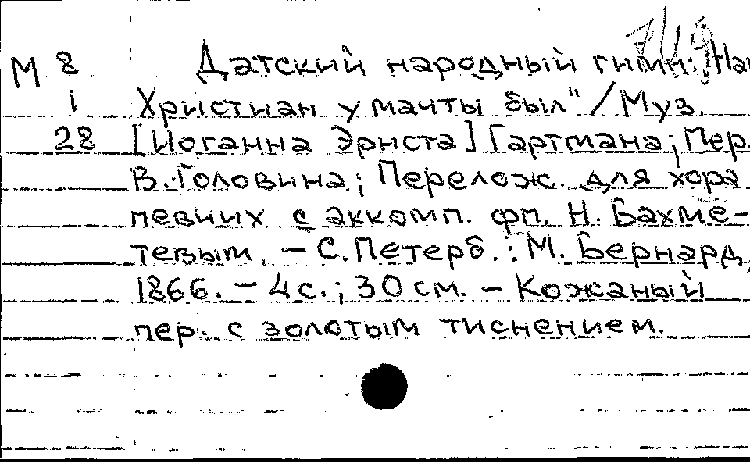 М 8 Датский народный гимн: „На
1 Христиан у мачты был" / Муз.
28 [Иоганна Эрнста] Гартмана; Пер.
В. Головина; Перелож. для хора
певчих с аккомп. фп. Н. Бахме-
тевым. – С. Петерб.: М. Бернард,
1866. – 4 с.; 30 см. – Кожаный
пер. с золотым тиснением.